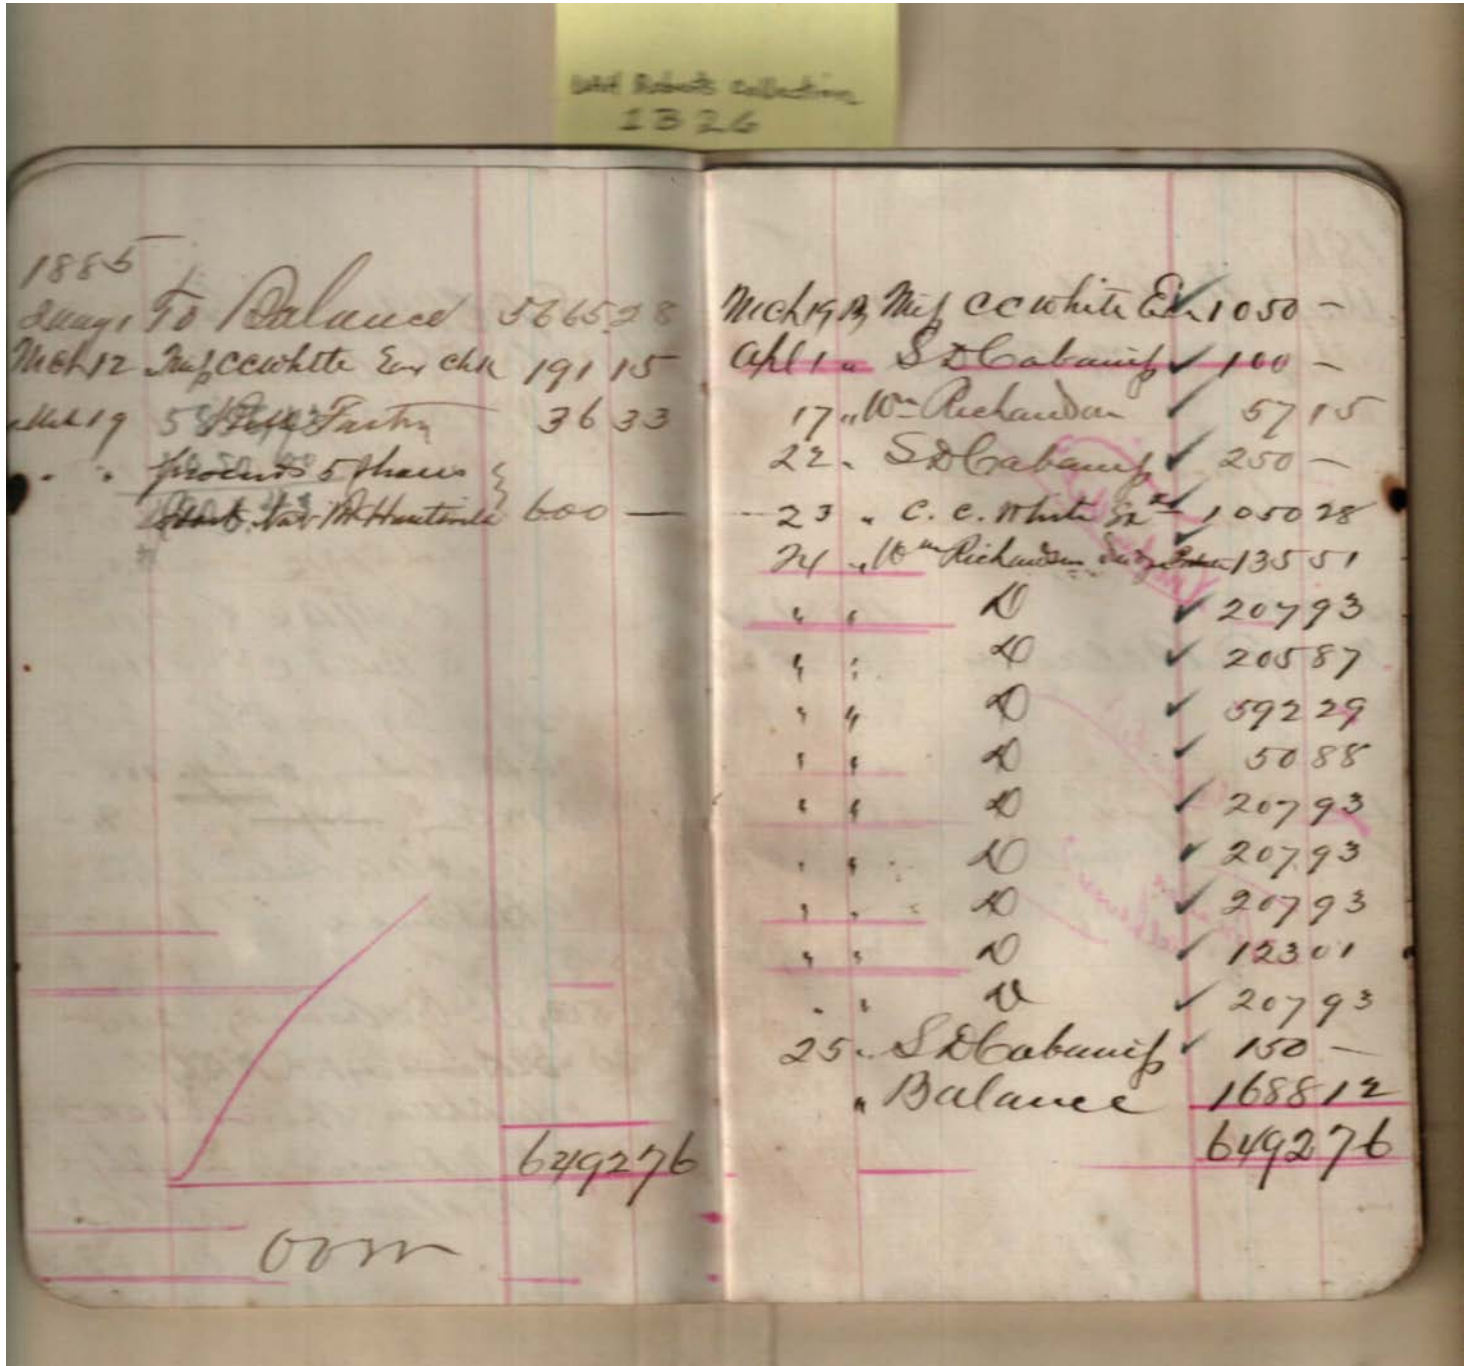 UAH Roberts Collection
1B26
1885
To Balance 5665 28
Mch 12 CC White Exr chk 191 15
Mch 19 36 33
" " proceeds 5 shares
Nat Bk Huntsville 600 —
6492 76
Mch 19 By CC White Ex 1050 —
Apl 1 " S D Cabaniss 100 —
17 " Wm Richardson 57 15
22 " S D Cabaniss 250 —
23 " C. C. White Exr 1050 28
24 " Wm Richardson Judge 135 51
" " D 207 93
" " D 205 87
" " D 592 29
" " D 50 88
" " D 207 93
" " D 207 93
" " D 207 93
" " D 123 01
" " D 207 93
25 " S D Cabaniss 150 —
" Balance 1688 12
6492 76